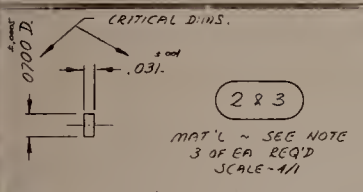 CRITICAL DIMS.
±.0005
.0700 D.
±.001
.031
2 & 3
MAT'L ~ SEE NOTE
3 OF EA REQ'D
SCALE ~ 4/1